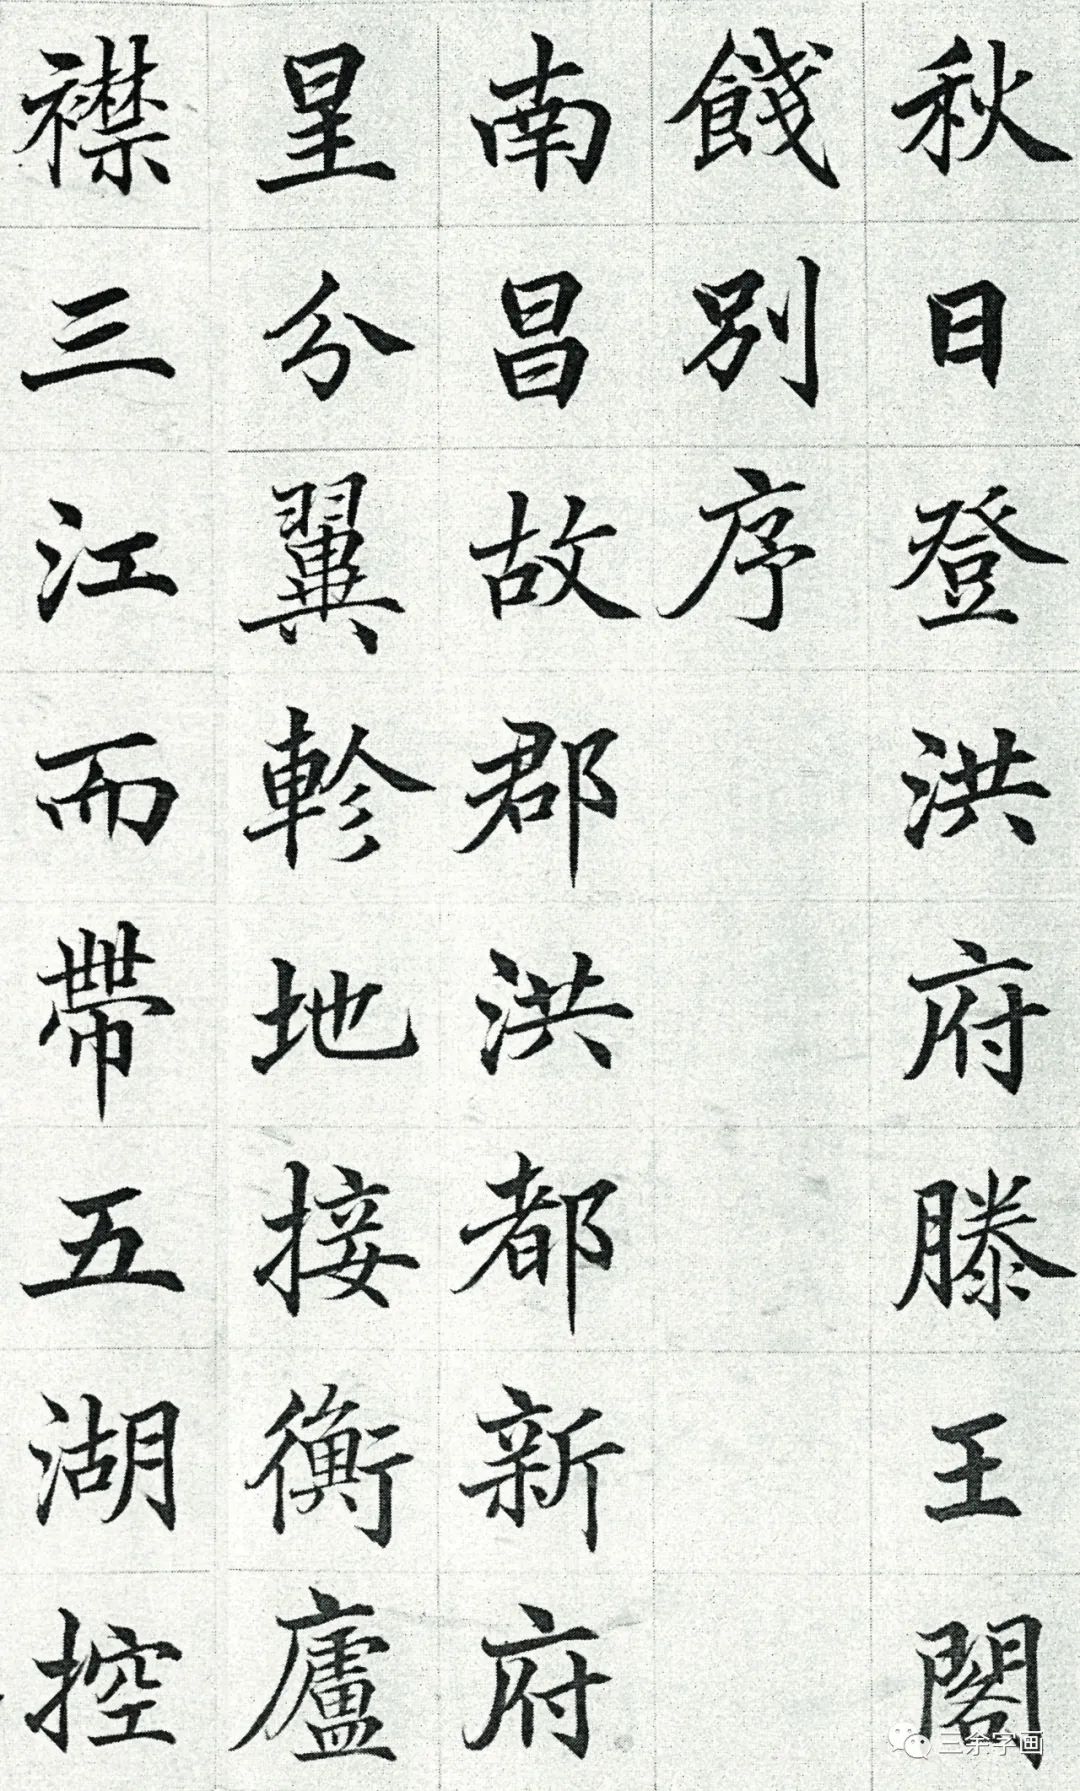 秋日登洪府滕王閣
餞別序
南昌故郡洪都新府
星分翼軫地接衡廬
襟三江而帶五湖控
三余字画